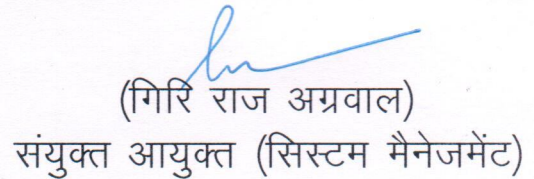 (गिरि राज अग्रवाल)
संयुक्त आयुक्त (सिस्टम मैनेजमेंट)